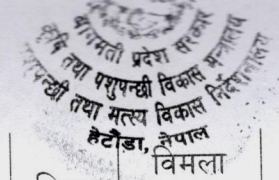 बागमती प्रदेश सरकार
कृषि तथा पशुपन्छी विकास मन्त्रालय
पशुपन्छी तथा मत्स्य विकास निर्देशनालय
हेटौंडा, नेपाल
विमला